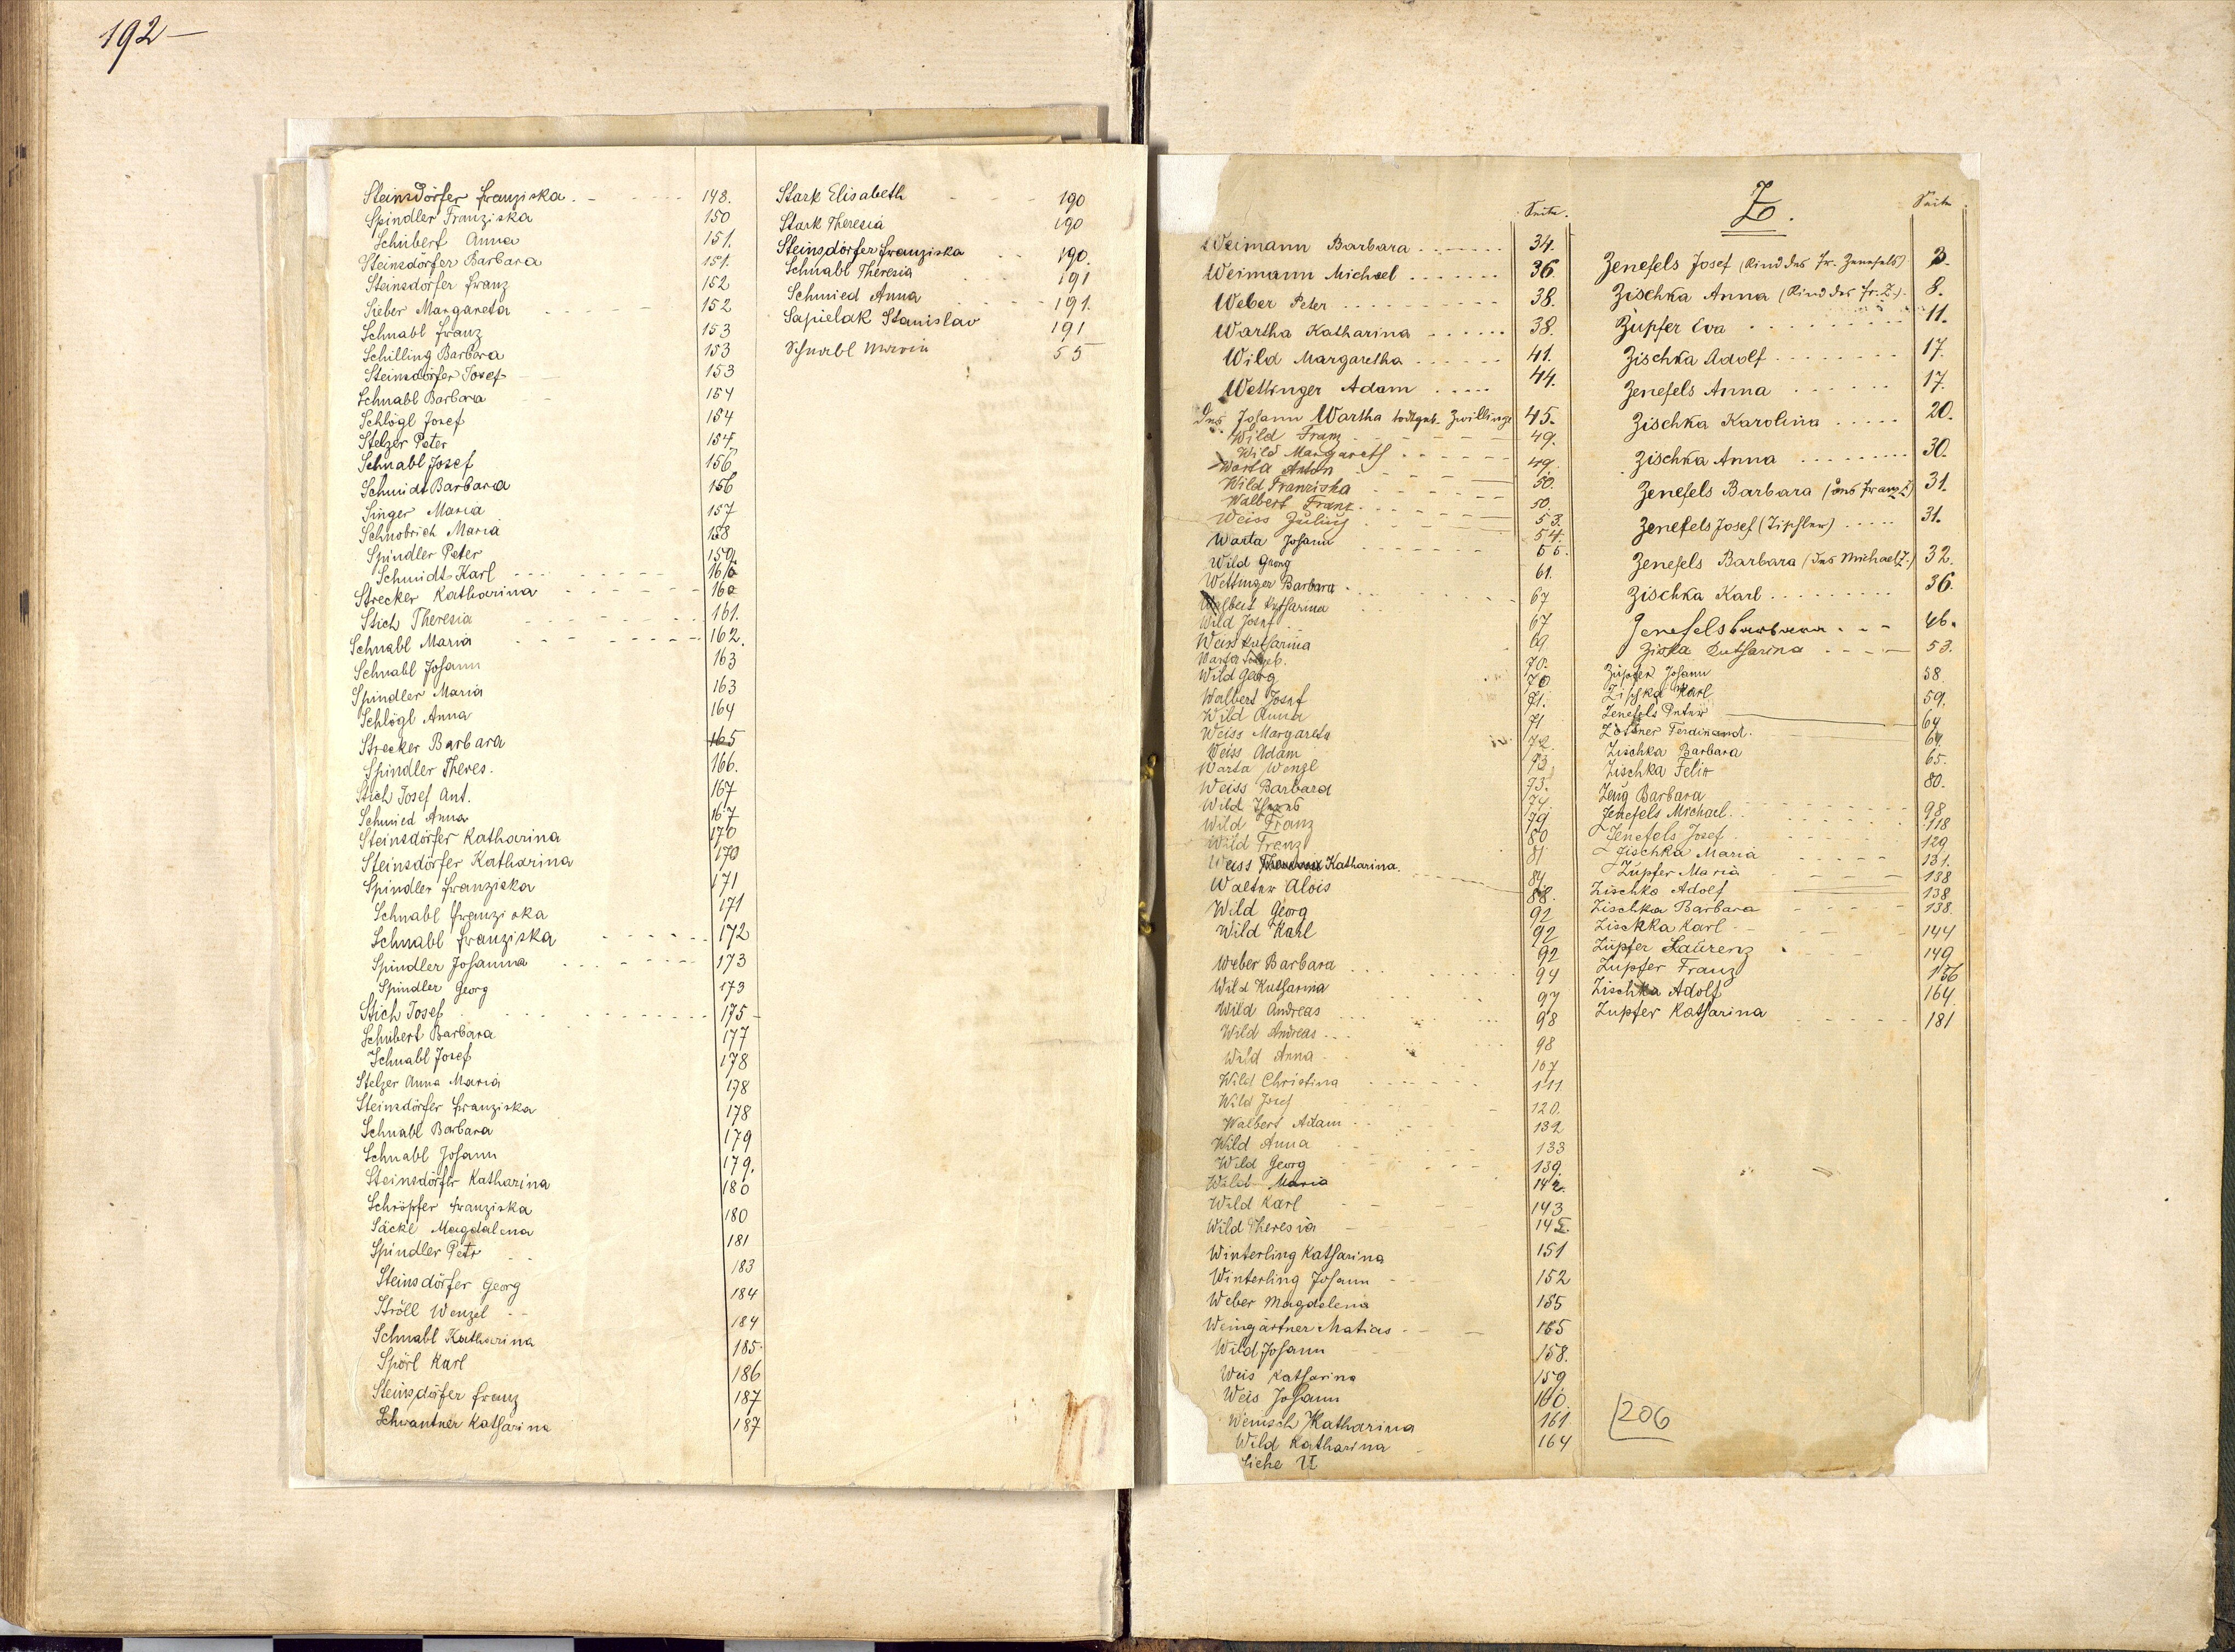 192 –
Steinsdörfer Franziska 148.
Spindler Franziska 150
Schubert Anna 151.
Steinsdörfer Barbara 151.
Steinsdörfer Franz 152
Sieber Margareta 152
Schnabl Franz 153
Schilling Barbara 153
Steinsdörfer Josef 153
Schnabl Barbara 154
Schlögl Josef 154
Stelzer Peter 154
Schnabl Josef 156
Schmidt Barbara 156
Singer Maria 157
Schnobrich Maria 158
Spindler Peter 159
Schmidt Karl 160
Strecker Katharina 160
Stich Theresia 161.
Schnabl Maria 162.
Schnabl Johann 163
Spindler Maria 163
Schlögl Anna 164
Strecker Barbara 165
Spindler Theres. 166.
Stich Josef Ant. 167
Schmied Anna 167
Steinsdörfer Katharina 170
Steinsdörfer Katharina 170
Spindler Franziska 171
Schnabl Franziska 171
Schnabl Franziska 172
Spindler Johanna 173
Spindler Georg 173
Stich Josef 175
Schubert Barbara 177
Schnabl Josef 178
Stelzer Anna Maria 178
Steinsdörfer Franziska 178
Schnabl Barbara 179
Schnabl Johann 179.
Steinsdörfer Katharina 180
Schröpfer Franziska 180
Säckl Magdalena 181
Spindler Petr 183
Steinsdörfer Georg 184
Ströll Wenzel 184
Schnabl Katharina 185
Spörl Karl 186
Steinsdörfer Franz 187
Schwantner Katharina 187
Stark Elisabeth 190
Stark Theresia 190
Steinsdörfer Franziska 190.
Schnabl Theresia 191
Schmied Anna 191.
Sapielak Stanislav 191
Schnabl Maria 55
Seite.
Weimann Barbara 34.
Weimann Michael 36.
Weber Peter 38.
Wartha Katharina 38.
Wild Margaretha 41.
Wettinger Adam 44.
Des Johann Wartha todtgeb. Zwillinge 45.
Wild Franz 49.
Wild Margareth 49.
Warta Anton 50.
Wild Franziska 50.
Walbert Franz 53.
Weiss Julius 54.
Warta Johann 55.
Wild Georg 61.
Wettinger Barbara 67
Walbert Katharina 67
Wild Josef 69
Weiss Katharina 70.
Warta 70
Wild Georg 71.
Walbert Josef 71
Wild Anna 72.
Weiss Margareta 73
Weiss Adam 73.
Warta Wenzl 74.
Weiss Barbara 79
Wild Theres 80
Wild Franz 81
Wild Franz 84
Weiss Katharina. 88.
Walter Alois 92
Wild Georg 92
Wild Karl 92
Weber Barbara 94
Wild Katharina 97
Wild Andreas 98
Wild Andreas 98
Wild Anna 107
Wild Christina 111
Wild Josef 120.
Walbert Adam 132
Wild Anna 133
Wild Georg 139.
Wild Maria 142.
Wild Karl 143
Wild Theresia 145.
Winterling Katharina 151
Winterling Johann 152
Weber Magdalena 155
Weingärtner Matias 155
Wild Johann 158.
Weis Katharina 159
Weis Johann 160.
Wenisch Katharina 161.
Wild Katharina 164
Siehe U
Z. Seite
Zenefels Josef (Kind des Fr. Zenefels) 3.
Zischka Anna (Kind des Fr. Z.) 8.
Zupfer Eva 11.
Zischka Adolf 17.
Zenefels Anna 17.
Zischka Karolina 20.
Zischka Anna 30.
Zenefels Barbara (des Franz Z) 31.
Zenefels Josef (Zipfler) 31.
Zenefels Barbara (des Michael Z.) 32.
Zischka Karl 36.
Zenefels Barbara 46.
Ziska Katharina 53.
Zupfer Johann 58.
Zischka Karl 59.
Zenefels Peter 64
Zottner Ferdinand. 64.
Zischka Barbara 65.
Zischka Felix 80.
Zeug Barbara 98
Zenefels Michael. 118
Zenefels Josef 129
Zischka Maria 131.
Zupfer Maria 138
Zischka Adolf 138
Zischka Barbara 138.
Zischka Karl 144
Zupfer Laurenz 149
Zupfer Franz 156
Zischka Adolf 164
Zupfer Katharina 181
206